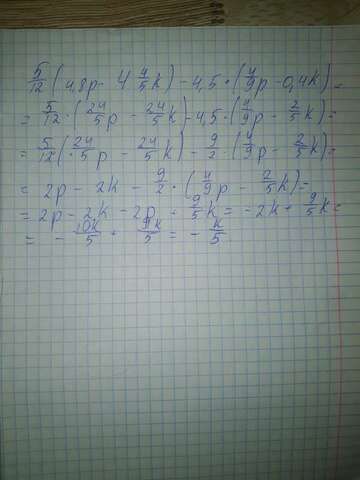 5/12 (4,8p - 4 4/5 k) - 4,5 · (4/9 p - 0,4k) =
= 5/12 · (24/5 p - 24/5 k) - 4,5 · (4/9 p - 2/5 k) =
= 5/12 (24/5 p - 24/5 k) - 9/2 · (4/9 p - 2/5 k) =
= 2p - 2k - 9/2 · (4/9 p - 2/5 k) =
= 2p - 2k - 2p + 9/5 k = -2k + 9/5 k =
= - 10k/5 + 9k/5 = - k/5